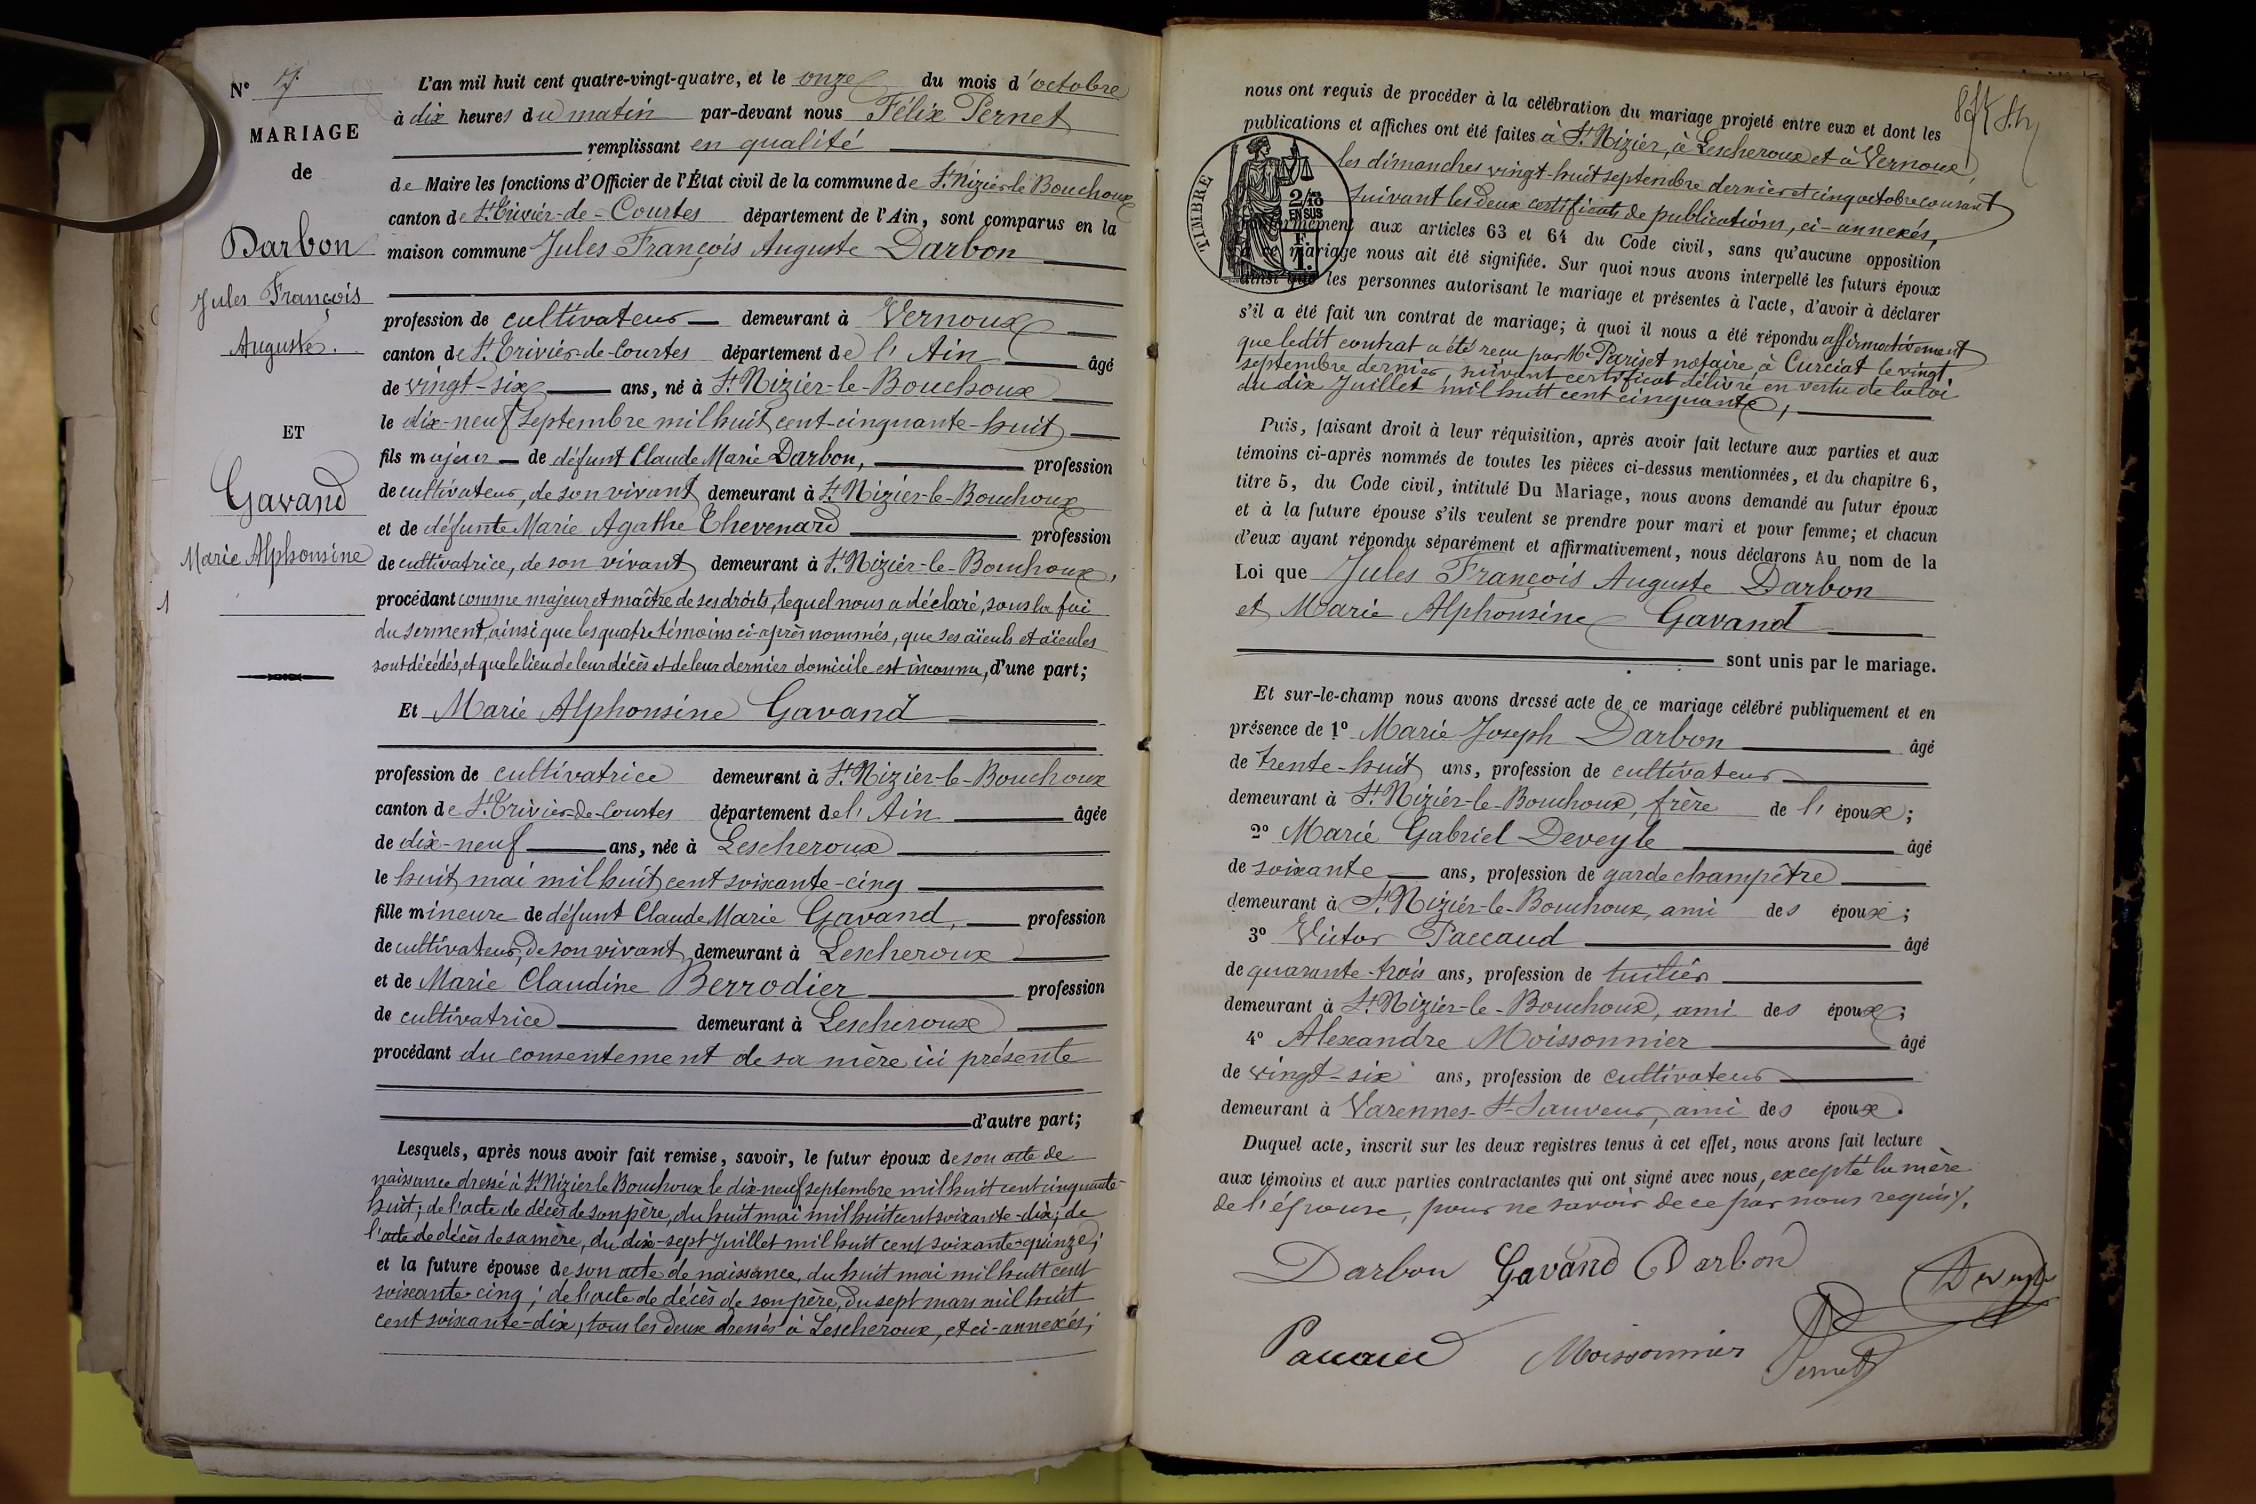 N° 7
MARIAGE
de
Darbon
Jules François
Auguste.
ET
Gavand
Marie Alphonsine
1
L'an mil huit cent quatre-vingt-quatre, et le onze du mois d'octobre
à dix heures du matin par-devant nous Félix Pernet
remplissant en qualité
de Maire les fonctions d'Officier de l'État civil de la commune de St Nizier le Bouchoux
canton de St Trivier-de-Courtes département de l'Ain, sont comparus en la
maison commune Jules François Auguste Darbon
profession de cultivateur demeurant à Vernoux
canton de St Trivier-de-Courtes département de l'Ain âgé
de vingt-six ans, né à St Nizier-le-Bouchoux
le dix-neuf septembre mil huit cent-cinquante-huit
fils majeur de défunt Claude Marie Darbon, profession
de cultivateur, de son vivant demeurant à St Nizier-le-Bouchoux
et de défunte Marie Agathe Thevenard profession
de cultivatrice, de son vivant demeurant à St Nizier-le-Bouchoux,
procédant comme majeur et maître de ses droits, lequel nous a déclaré, sous la foi
du serment, ainsi que les quatre témoins ci-après nommés, que ses aïeuls et aïeules
sont décédés, et que le lieu de leur décès et de leur dernier domicile est inconnu, d'une part;
Et Marie Alphonsine Gavand
profession de cultivatrice demeurant à St Nizier-le-Bouchoux
canton de St Trivier-de-Courtes département de l'Ain âgée
de dix-neuf ans, née à Lescheroux
le huit mai mil huit cent soixante-cinq
fille mineure de défunt Claude Marie Gavand, profession
de cultivateur, de son vivant, demeurant à Lescheroux
et de Marie Claudine Berrodier profession
de cultivatrice demeurant à Lescheroux
procédant du consentement de sa mère ici présente
d'autre part;
Lesquels, après nous avoir fait remise, savoir, le futur époux de son acte de
naissance dressé à St Nizier le Bouchoux le dix-neuf septembre mil huit cent cinquante-
huit; de l'acte de décès de son père, du huit mai mil huit cent soixante-dix; de
l'acte de décès de sa mère, du dix-sept Juillet mil huit cent soixante-quinze;
et la future épouse de son acte de naissance, du huit mai mil huit cent
soixante-cinq; de l'acte de décès de son père, du sept mars mil huit
cent soixante-dix, tous les deux dressés à Lescheroux, et ci-annexés;
nous ont requis de procéder à la célébration du mariage projeté entre eux et dont les
publications et affiches ont été faites à St Nizier, à Lescheroux et à Vernoux,
les dimanches vingt-huit septembre dernier et cinq octobre courant
suivant les deux certificats de publications, ci-annexés,
TIMBRE
2/10
EN SUS
F.
1.
conformément aux articles 63 et 64 du Code civil, sans qu'aucune opposition
à ce mariage nous ait été signifiée. Sur quoi nous avons interpellé les futurs époux
ainsi que les personnes autorisant le mariage et présentes à l'acte, d'avoir à déclarer
s'il a été fait un contrat de mariage; à quoi il nous a été répondu affirmativement
que ledit contrat a été reçu par Me Pariset notaire à Curciat le vingt
septembre dernier, suivant certificat délivré en vertu de la loi
du dix Juillet mil huit cent cinquante,
Puis, faisant droit à leur réquisition, après avoir fait lecture aux parties et aux
témoins ci-après nommés de toutes les pièces ci-dessus mentionnées, et du chapitre 6,
titre 5, du Code civil, intitulé Du Mariage, nous avons demandé au futur époux
et à la future épouse s'ils veulent se prendre pour mari et pour femme; et chacun
d'eux ayant répondu séparément et affirmativement, nous déclarons Au nom de la
Loi que Jules François Auguste Darbon
et Marie Alphonsine Gavand
sont unis par le mariage.
Et sur-le-champ nous avons dressé acte de ce mariage célébré publiquement et en
présence de 1° Marie Joseph Darbon âgé
de trente-huit ans, profession de cultivateur
demeurant à St Nizier-le-Bouchoux, frère de l'époux;
2° Marie Gabriel Deveyle âgé
de soixante ans, profession de garde champêtre
demeurant à St Nizier-le-Bouchoux, ami des époux;
3° Victor Paccaud âgé
de quarante-trois ans, profession de tuilier
demeurant à St Nizier-le-Bouchoux, ami des époux;
4° Alexandre Moissonnier âgé
de vingt-six ans, profession de cultivateur
demeurant à Varennes-St-Sauveur, ami des époux.
Duquel acte, inscrit sur les deux registres tenus à cet effet, nous avons fait lecture
aux témoins et aux parties contractantes qui ont signé avec nous, excepté la mère
de l'épouse, pour ne savoir de ce par nous requis.
Darbon Gavand Darbon Deveyle
Paccaud Moissonnier Pernet